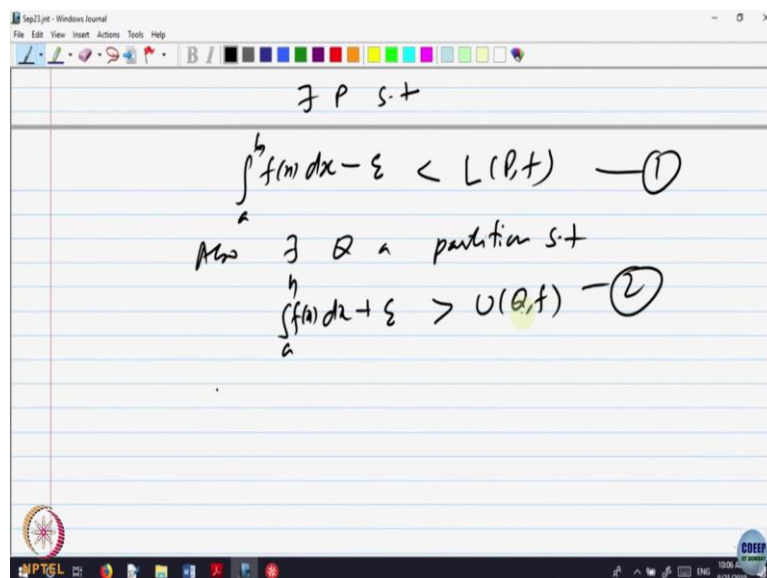 Sep23.jnt - Windows Journal
File Edit View Insert Actions Tools Help
B I
∃ P s.t
∫_a^b f(x) dx - ε < L(P,f) — ①
Also ∃ Q a partition s.t
∫_a^b f(x) dx + ε > U(Q,f) — ②
NPTEL
CDEEP
IIT BOMBAY
ENG
10:06 A